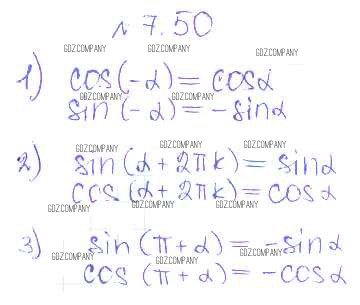 № 7.50
GDZ.COMPANY GDZ.COMPANY GDZ.COMPANY
1) cos(-α) = cosα
GDZ.COMPANY GDZ.COMPANY
sin(-α) = -sinα
GDZ.COMPANY GDZ.COMPANY GDZ.COMPANY
2) sin(α+2πk) = sinα
cos(α+2πk) = cosα
GDZ.COMPANY GDZ.COMPANY GDZ.COMPANY
3) sin(π+α) = -sinα
GDZ.COMPANY GDZ.COMPANY GDZ.COMPANY
cos(π+α) = -cosα